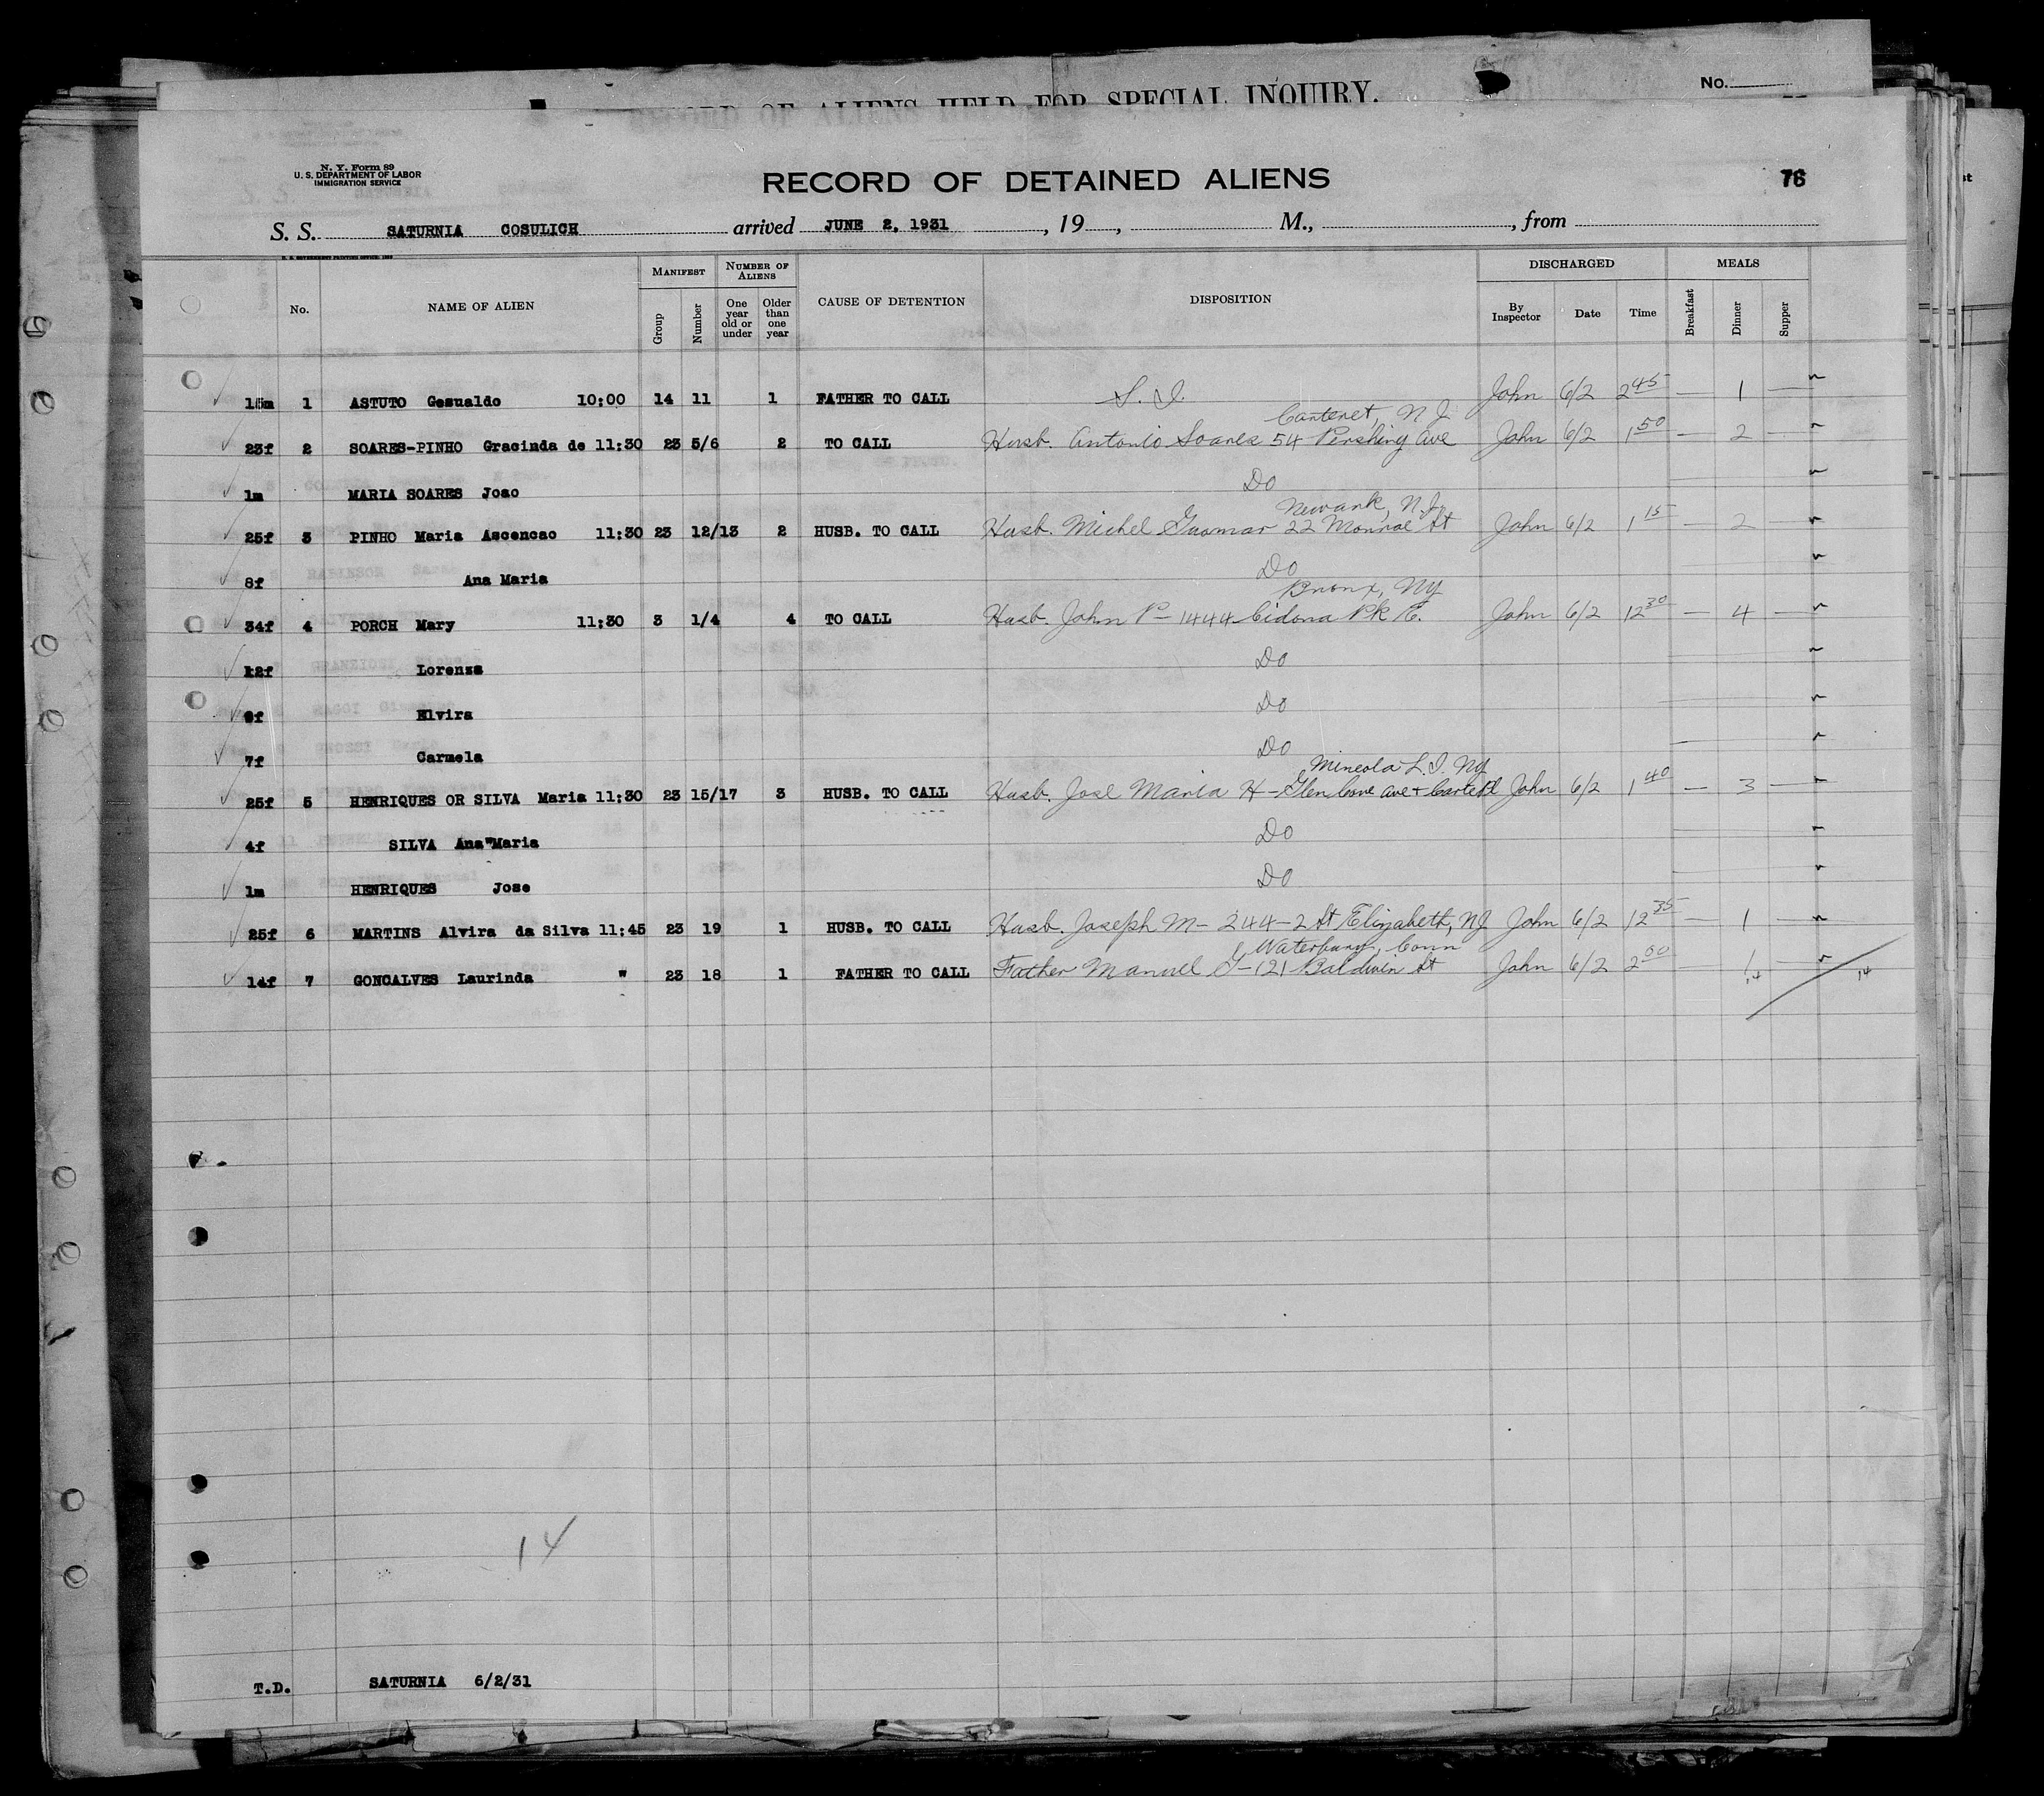 RECORD OF ALIENS HELD FOR SPECIAL INQUIRY.
No.
N. Y. Form 89
U. S. DEPARTMENT OF LABOR
IMMIGRATION SERVICE
RECORD OF DETAINED ALIENS
76
S. S. SATURNIA COSULICH arrived JUNE 2, 1931 , 19 , M., , from
No. NAME OF ALIEN MANIFEST Group Number NUMBER OF ALIENS One year old or under Older than one year CAUSE OF DETENTION DISPOSITION DISCHARGED By Inspector Date Time MEALS Breakfast Dinner Supper
15m 1 ASTUTO Gesualdo 10:00 14 11 1 FATHER TO CALL S. I. John 6/2 2 45 — 1 —
Carteret, N J.
23f 2 SOARES-PINHO Gracinda de 11:30 23 5/6 2 TO CALL Husb. Antonio Soares 54 Pershing Ave John 6/2 1 50 — 2 —
1m MARIA SOARES Joao Do
Newark, N.J.
25f 3 PINHO Maria Ascencao 11:30 23 12/13 2 HUSB. TO CALL Husb. Michel 22 Monroe St John 6/2 1 15 — 2 —
8f Ana Maria Do
Bronx, NY
34f 4 PORCH Mary 11:30 3 1/4 4 TO CALL Husb. John P — 1444 Pk E. John 6/2 12 30 — 4 —
12f Lorenza Do
9f Elvira Do
7f Carmela Do
Mineola L. I. NY
25f 5 HENRIQUES OR SILVA Maria 11:30 23 15/17 3 HUSB. TO CALL Husb. Jose Maria H — Glen Cove Ave + John 6/2 1 40 — 3 —
4f SILVA Ana Maria Do
1m HENRIQUES Jose Do
25f 6 MARTINS Alvira da Silva 11:45 23 19 1 HUSB. TO CALL Husb. Joseph M — 244 — 2 St Elizabeth, NJ John 6/2 12 35 — 1 —
Waterbury, Conn
14f 7 GONCALVES Laurinda " 23 18 1 FATHER TO CALL Father Manuel G — 121 Baldwin St John 6/2 2 00 — 1 —
14 14
14
T.D. SATURNIA 6/2/31